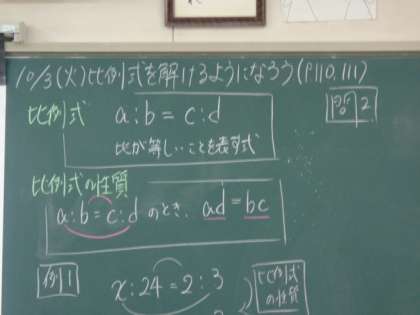 10/3(火)比例式を解けるようになろう(P110.111)
比例式 a:b=c:d
問2
比が等しいことを表す式
比例式の性質
a:b=c:dのとき、ad=bc
例1
x:24=2:3
比例式
の性質